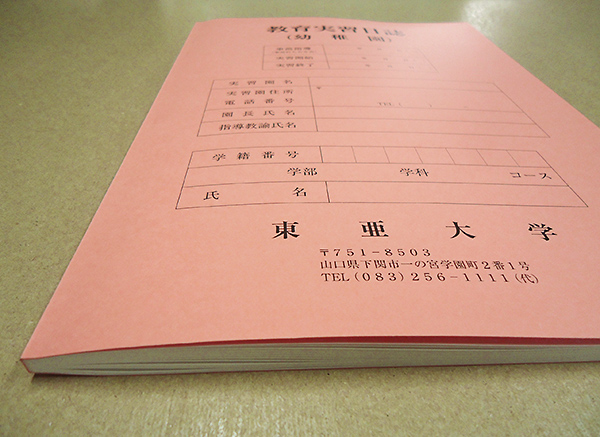 教育実習日誌
（幼稚園）
実習開始
実習終了
実習園名
実習園住所 〒
電話番号 TEL (
園長氏名
指導教諭氏名
学籍番号
学部 学科 コース
氏名
東亜大学
〒751-8503
山口県下関市一の宮学園町2番1号
TEL(083)256-1111(代)